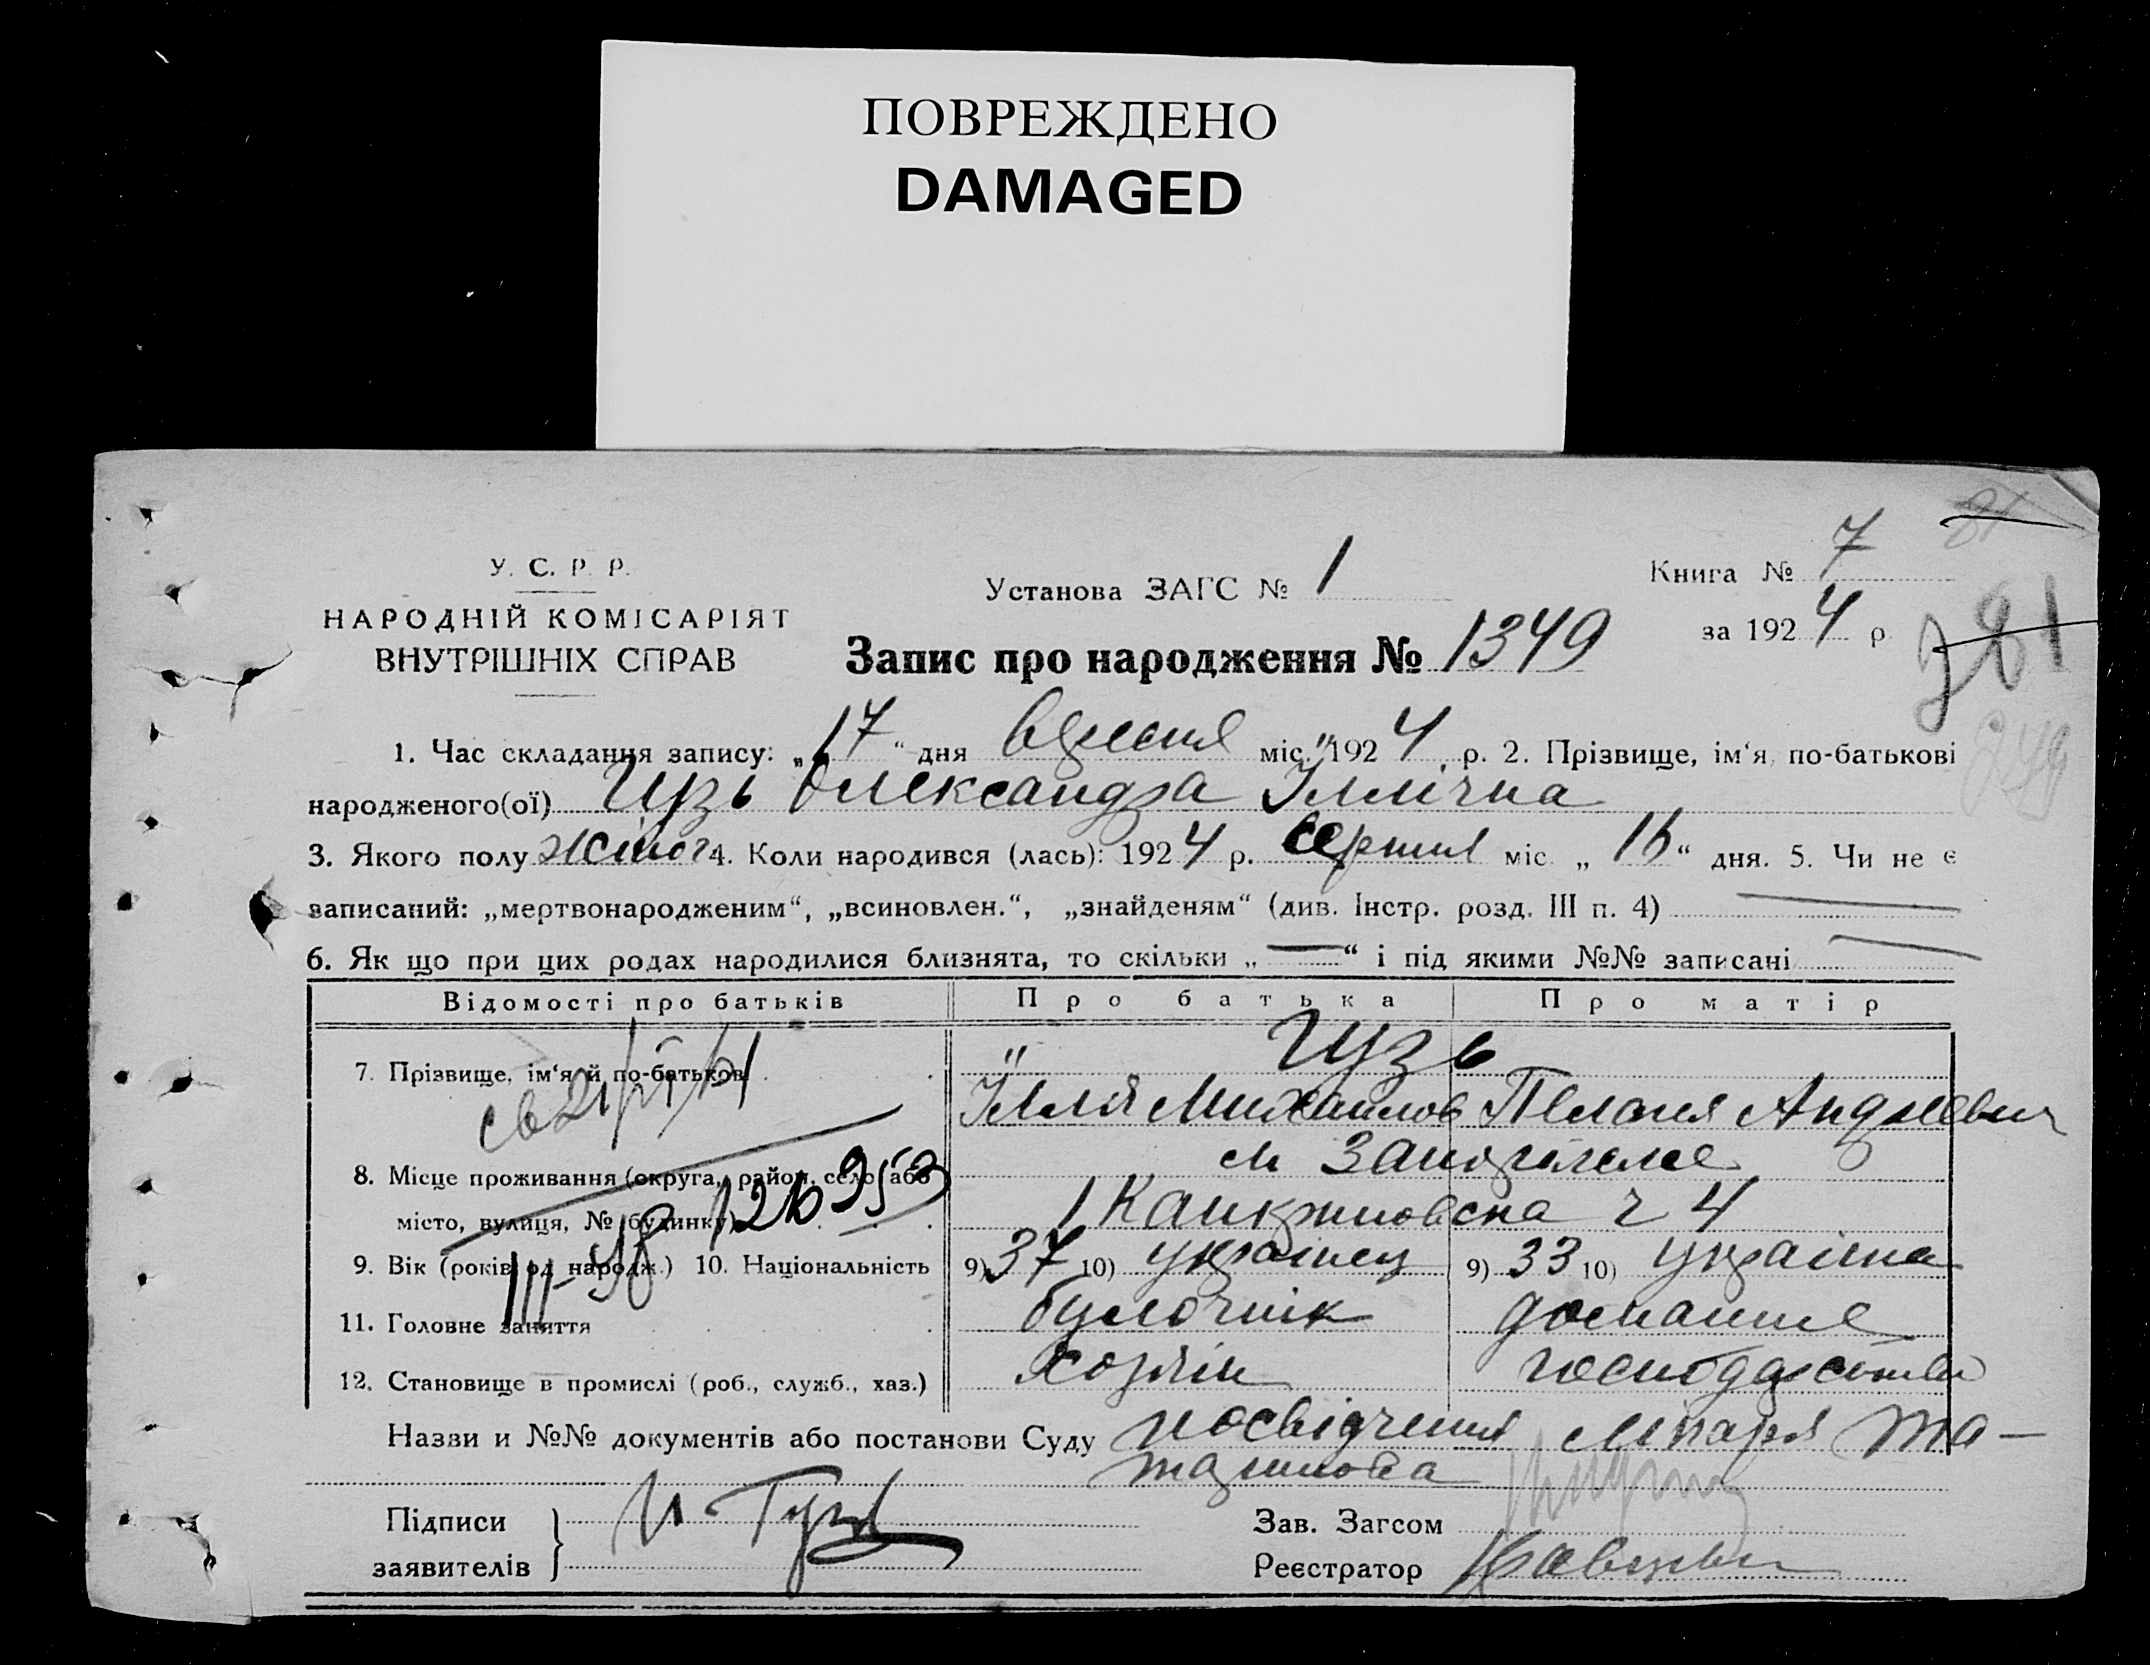 ПОВРЕЖДЕНО
DAMAGED
У. С. Р. Р.
НАРОДНІЙ КОМІСАРІЯТ
ВНУТРІШНІХ СПРАВ
Установа ЗАГС № 1
Книга № 7
за 1924 р
Запис про народження № 1349
281
1. Час складання запису: „17“ дня вересня міс. 1924 р. 2. Прізвище, ім‘я, по-батькові
народженого(ої) Гузь Олександра Іллічна
3. Якого полу жіноч 4. Коли народився (лась): 1924 р. серпня міс. „16“ дня. 5. Чи не є
записаний: „мертвонародженим“, „всиновлен.“, „знайденям“ (див. Інстр. розд. III п. 4) —
6. Як що при цих родах народилися близнята, то скільки „—“ і під якими №№ записані —
Відомості про батьків Про батька Про матір
7. Прізвище, ім‘я й по-батькові Гузь
Ілля Михайлов Пелагія Андреевн
8. Місце проживання (округа, район, село або
місто, вулиця, № будинку) м Запоріжже
9. Вік (років од народж.) 10. Національність 9) 37 10) украінец 9) 33 10) украінка
11. Головне заняття булочнік домашнє
12. Становище в промислі (роб., служб., хаз.) хозяін господарство
Назви и №№ документів або постанови Суду посвідчення лікаря Та-
Підписи
заявителів
И Гузь
Зав. Загсом
Реєстратор